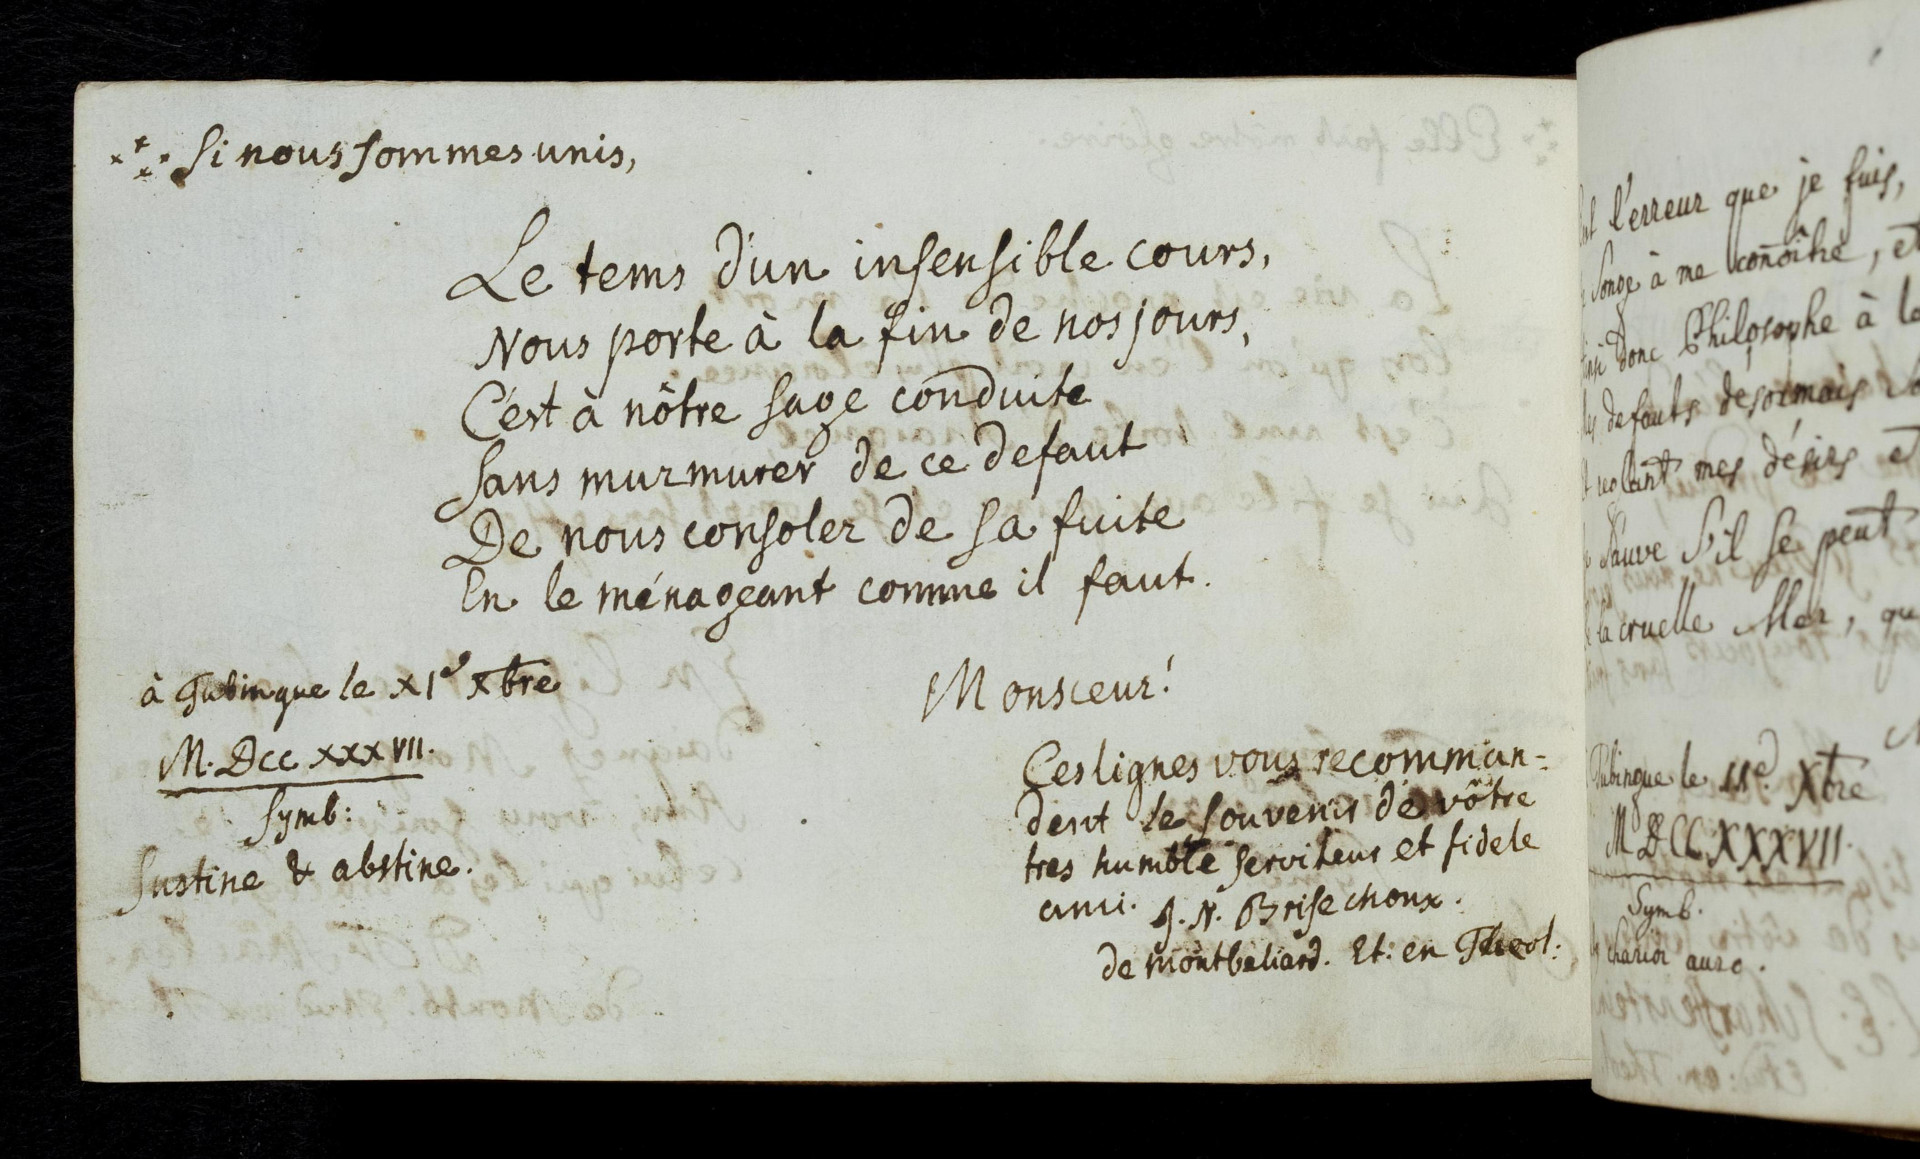 Si nous sommes unis,
Le tems d'un insensible cours,
Nous porte à la fin de nos jours,
C'est à nôtre sage conduite
Sans murmurer de ce defaut
De nous consoler de sa fuite
En le ménageant comme il faut.
à Tubingue le XIe Xbre
M. DCC XXXVII.
Symb:
Sustine & abstine.
Monsieur!
Ces lignes vous recomman-
dent le souvenir de vôtre
tres humble serviteur et fidele
ami. J. N. Brisechoux.
de Montbeliard. Et: en Theol:
l'erreur que je fuis,
songe à me connoître, et
donc Philosophe à la
defauts désormais
volant mes désirs et
Sauve S'il se peut
la cruelle Mer, qu
Tubingue le 11e. Xbre
MDCCXXXVII.
Symb.